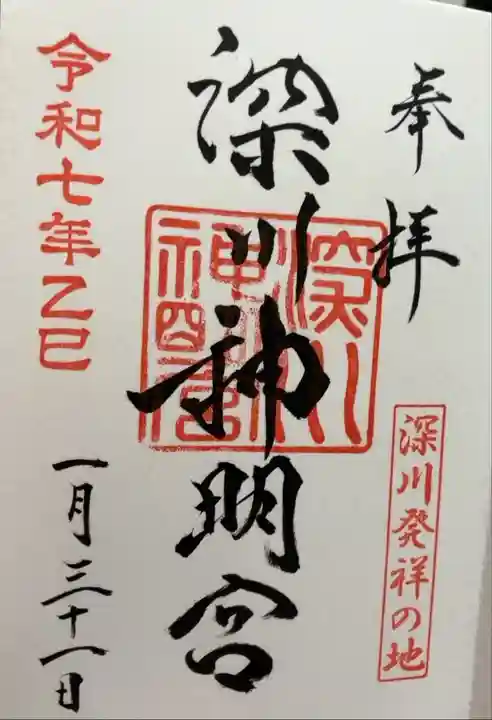 奉拝
深川発祥の地
深川神明宮
深川神明宮
令和七年乙巳
一月三十一日